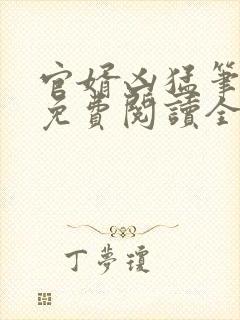 官婿凶猛筆
免費閱讀全
丁夢瓊